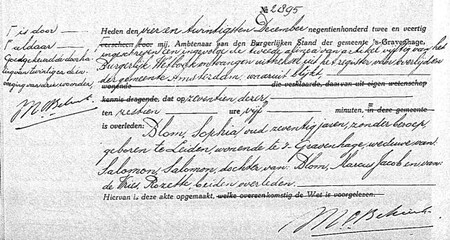 № 2895
Heden den zeven en twintigsten December negentienhonderd twee en veertig
verscheen voor mij, Ambtenaar van den Burgerlijken Stand der gemeente 's-Gravenhage,
ingeschreven ingevolge de tweede alinea van artikel vijftig van het
Burgerlijk Wetboek ontvangen uittreksel uit het register van overlijden
der gemeente Amsterdam, waaruit blijkt,
wonende die verklaarde, dat uit eigen wetenschap
kennis dragende, dat op zeventien dezer
ten zestien ure vijf minuten, in deze gemeente
is overleden: Blom, Sophia, oud zeventig jaren, zonder beroep,
geboren te Leiden, wonende te 's-Gravenhage, weduwe van
Salomon, Salomon, dochter van: Blom, Marcus Jacob en van
de Vries, Rozette, beiden overleden.
Hiervan is deze akte opgemaakt, welke overeenkomstig de Wet is voorgelezen.
Γ is door
Γ aldaar
Goedgekeurd de doorhaling
van twintig